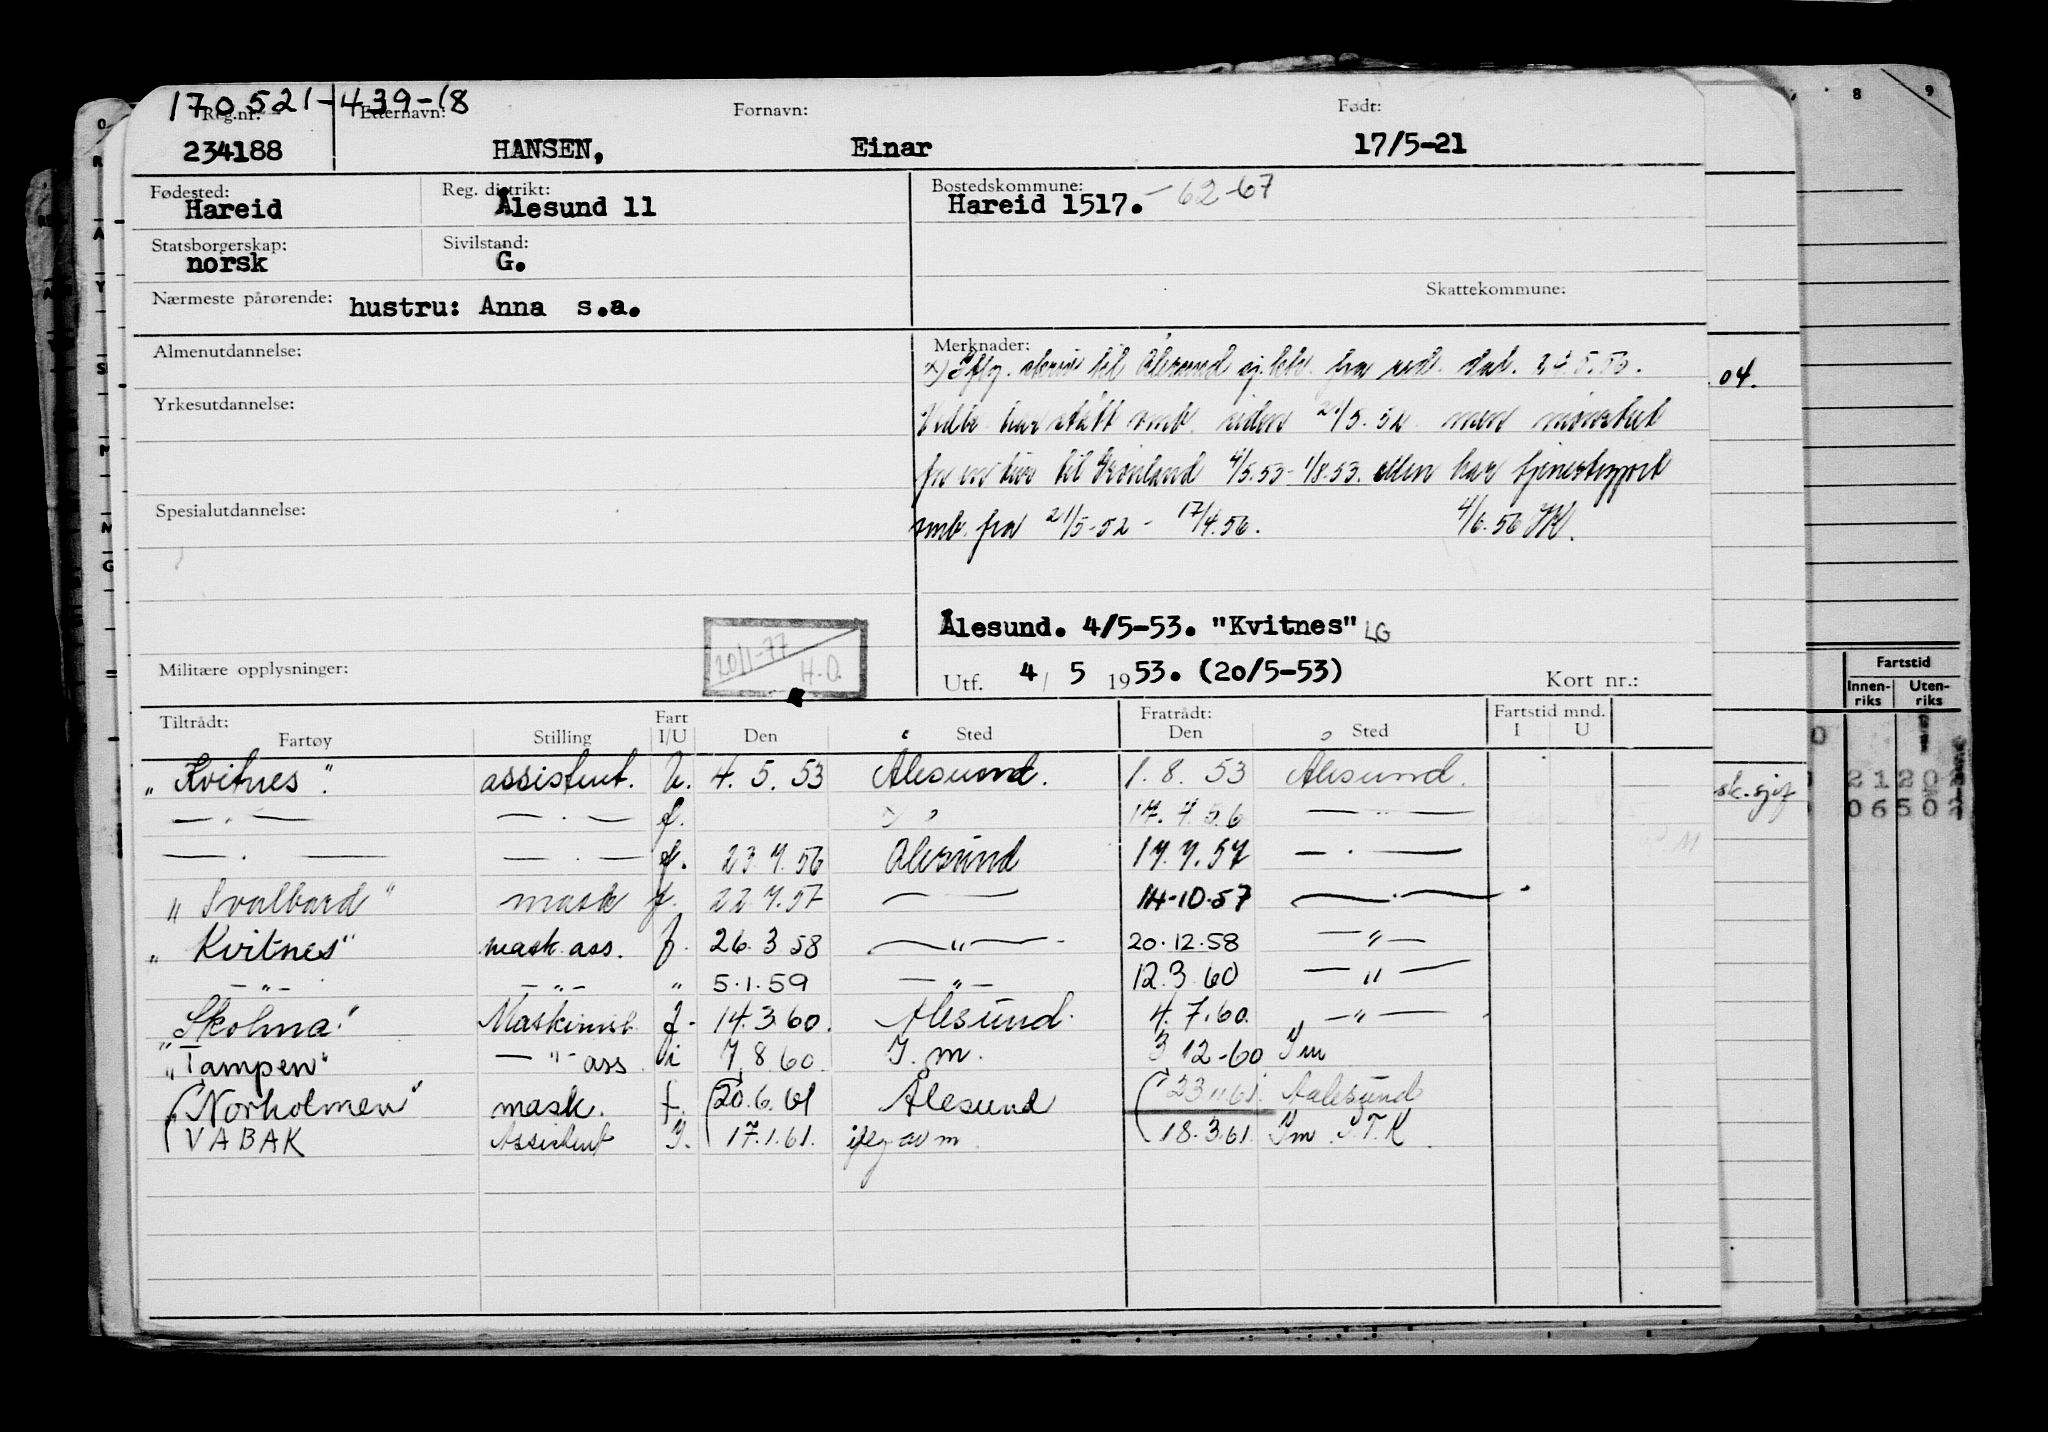 170521-439-18
Reg.nr. Etternavn: Fornavn: Født:
234188 HANSEN, Einar 17/5-21
Fødested: Reg. distrikt: Bostedskommune:
Hareid Ålesund 11 Hareid 1517. - 62-67
Statsborgerskap: Sivilstand:
norsk G.
Skattekommune:
Nærmeste pårørende: hustru: Anna s.a.
Almenutdannelse: Merknader:
x) Iflg. skriv til Ålesund fra red. dat. 5.56.
04.
Yrkesutdannelse:
Vedk. har stått omb. siden 21/5.52 men mønstret
for en tur til Grønland 4/5.53 - 1/8.53. ellers har tjenestegjort
Spesialutdannelse:
omb. fra 21/5-52 - 17/4.56. 4/6.56
Ålesund. 4/5-53. "Kvitnes" LG
20/1-77 H.O.
Militære opplysninger:
Utf. 4/ 5 1953. (20/5-53) Kort nr.:
Tiltrådt: Fart Fratrådt: Fartstid mnd.
Fartøy Stilling I/U Den Sted Den Sted I U
"Kvitnes". assistent. U. 4. 5. 53 Ålesund. 1. 8. 53 Ålesund.
— . — — . — f. x) 17. 4. 56 — " —
— . — — . — f. 23.4.56 Ålesund 17.7.57 — . —
"Svalbard" mask f. 22 7.57 — — 14-10-57 — . —
"Kvitnes" mask. ass. f. 26.3.58 — " — 20.12.58 — " —
— " — — " — " 5.1.59 — " — 12.3.60 — " —
"Skolma" Maskinist f. 14.3.60. Ålesund. 4.7.60. — " —
"Tampen" — " — ass i 7.8.60. I.m. 3 12-60 Im
"Norholmen" mask. f. 20.6.61 Ålesund 23.11.61. Aalesund
VABAK Assistent I. 17.1.61. iflg av m 18.3.61 Im S.T.K.
8 9
Fartstid
Innen-riks Uten-riks
sk. sjef
0 2120
06502